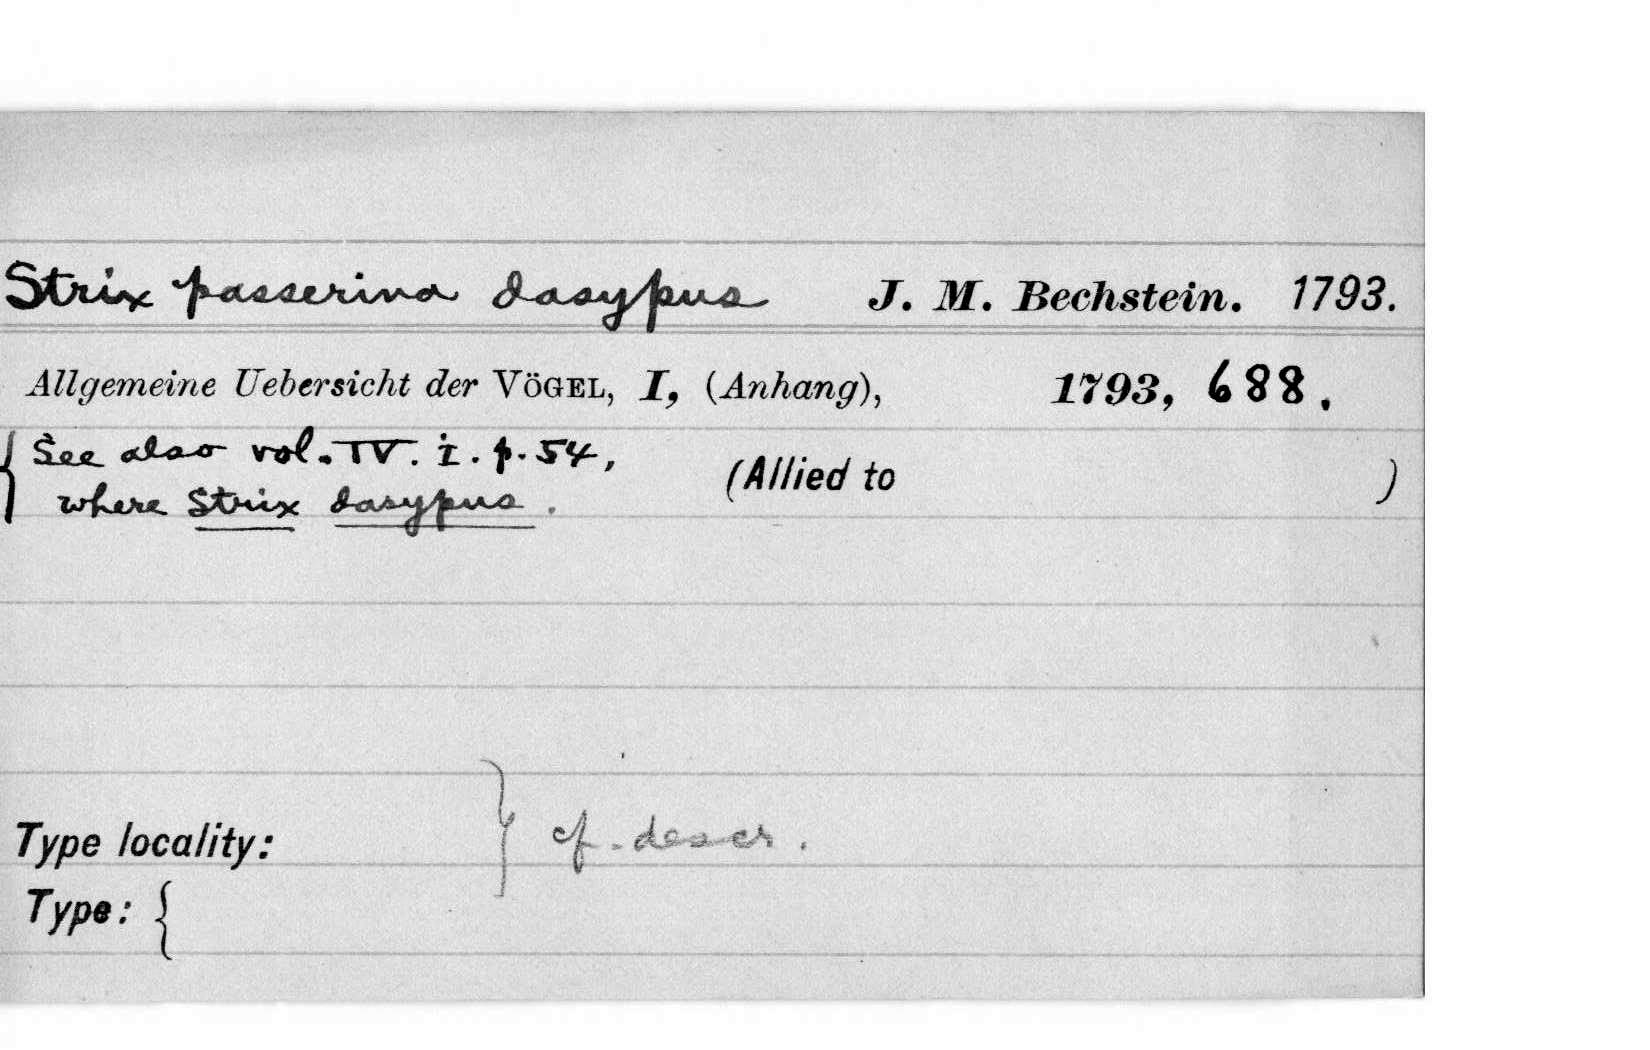 Strix passerina dasypus J. M. Bechstein. 1793.
Allgemeine Uebersicht der VÖGEL, I, (Anhang), 1793, 688.
{ See also vol. IV. i. p. 54, (Allied to )
where Strix dasypus.
Type locality: } cf. descr.
Type: {